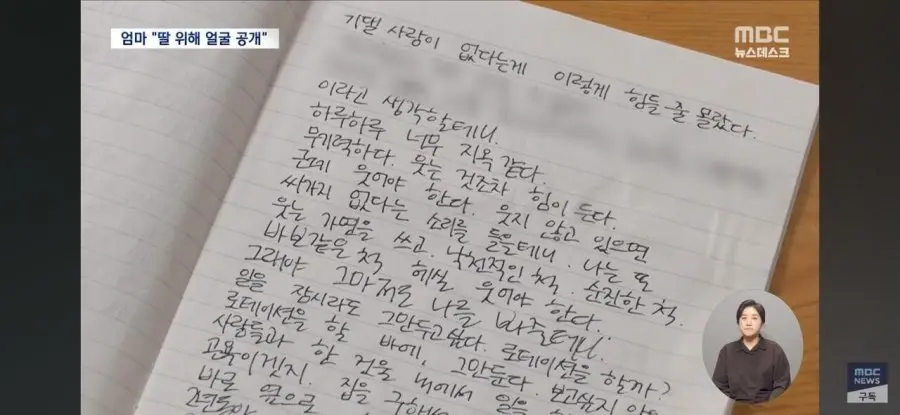 엄마 "딸 위해 얼굴 공개"
MBC
뉴스데스크
기댈 사람이 없다는게 이렇게 힘들 줄 몰랐다.
이라고 생각할테니.
하루하루 너무 지옥 같다.
무기력하다. 웃는 것조차 힘이 든다.
근데 웃어야 한다. 웃지 않고 있으면
싸가지 없다는 소리를 들을테니. 나는 또
웃는 가면을 쓰고. 낙천적인 척. 순진한 척.
바보같은 척 헤실 웃어야 한다.
그래야 그마저로 나를 봐줄테니.
일을 잠시라도 그만두고싶다. 로테이션을 할까?
로테이션을 할 바에, 그만둔다. 보고싶지
사람들과 한 건물 내에서 일을
고욕이겠지. 집을
바로 옆으로
MBC
NEWS
구독